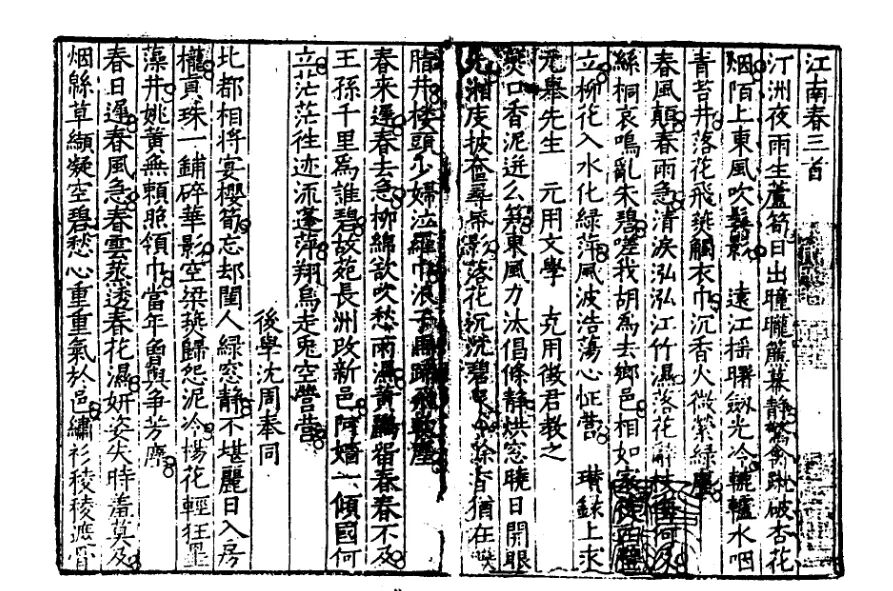 江南春三首
汀洲夜雨生蘆筍日出曈曨簾幕靜驚禽蹴破杏花
烟陌上東風吹鬢影 遠江搖曙劍光冷轆轤水咽
青苔井落花飛燕觸衣巾沉香火微縈綠塵
春風顛春雨急清淚泓泓江竹濕落花辭枝悔何及
絲桐哀鳴亂朱碧嗟我胡為去鄉邑相如家徒四壁
立柳花入水化綠萍風波浩蕩心怔營 瓚錄上求
元舉先生 元用文學 克用徵君教之
燕口香泥迸么筍東風力汰倡條靜烘窓曉日開眼
光湘庋披奩尋昨影落花沉沉碧泉冷餘香猶在咲
脂井樓頭少婦泣羅巾浪子馬蹄飛軟塵
春來遲春去急柳綿欲吹愁雨濕黃鸝留春春不及
王孫千里爲誰碧故苑長洲改新邑阿嬙一傾國何
立茫茫往迹流蓬萍翔烏走兎空營營
後學沈周奉同
北都相將宴櫻筍忘却閨人綠窓靜不堪麗日入房
櫳真珠一鋪碎華影空梁燕歸怨泥冷楊花輕狂墮
藻井姚黃無賴照領巾當年魯與爭芳塵
春日遲春風急春雲蒸透春花濕妍姿失時羞莫及
烟綿草纈凝空碧愁心重重氣於邑繡衫稜稜遮骨